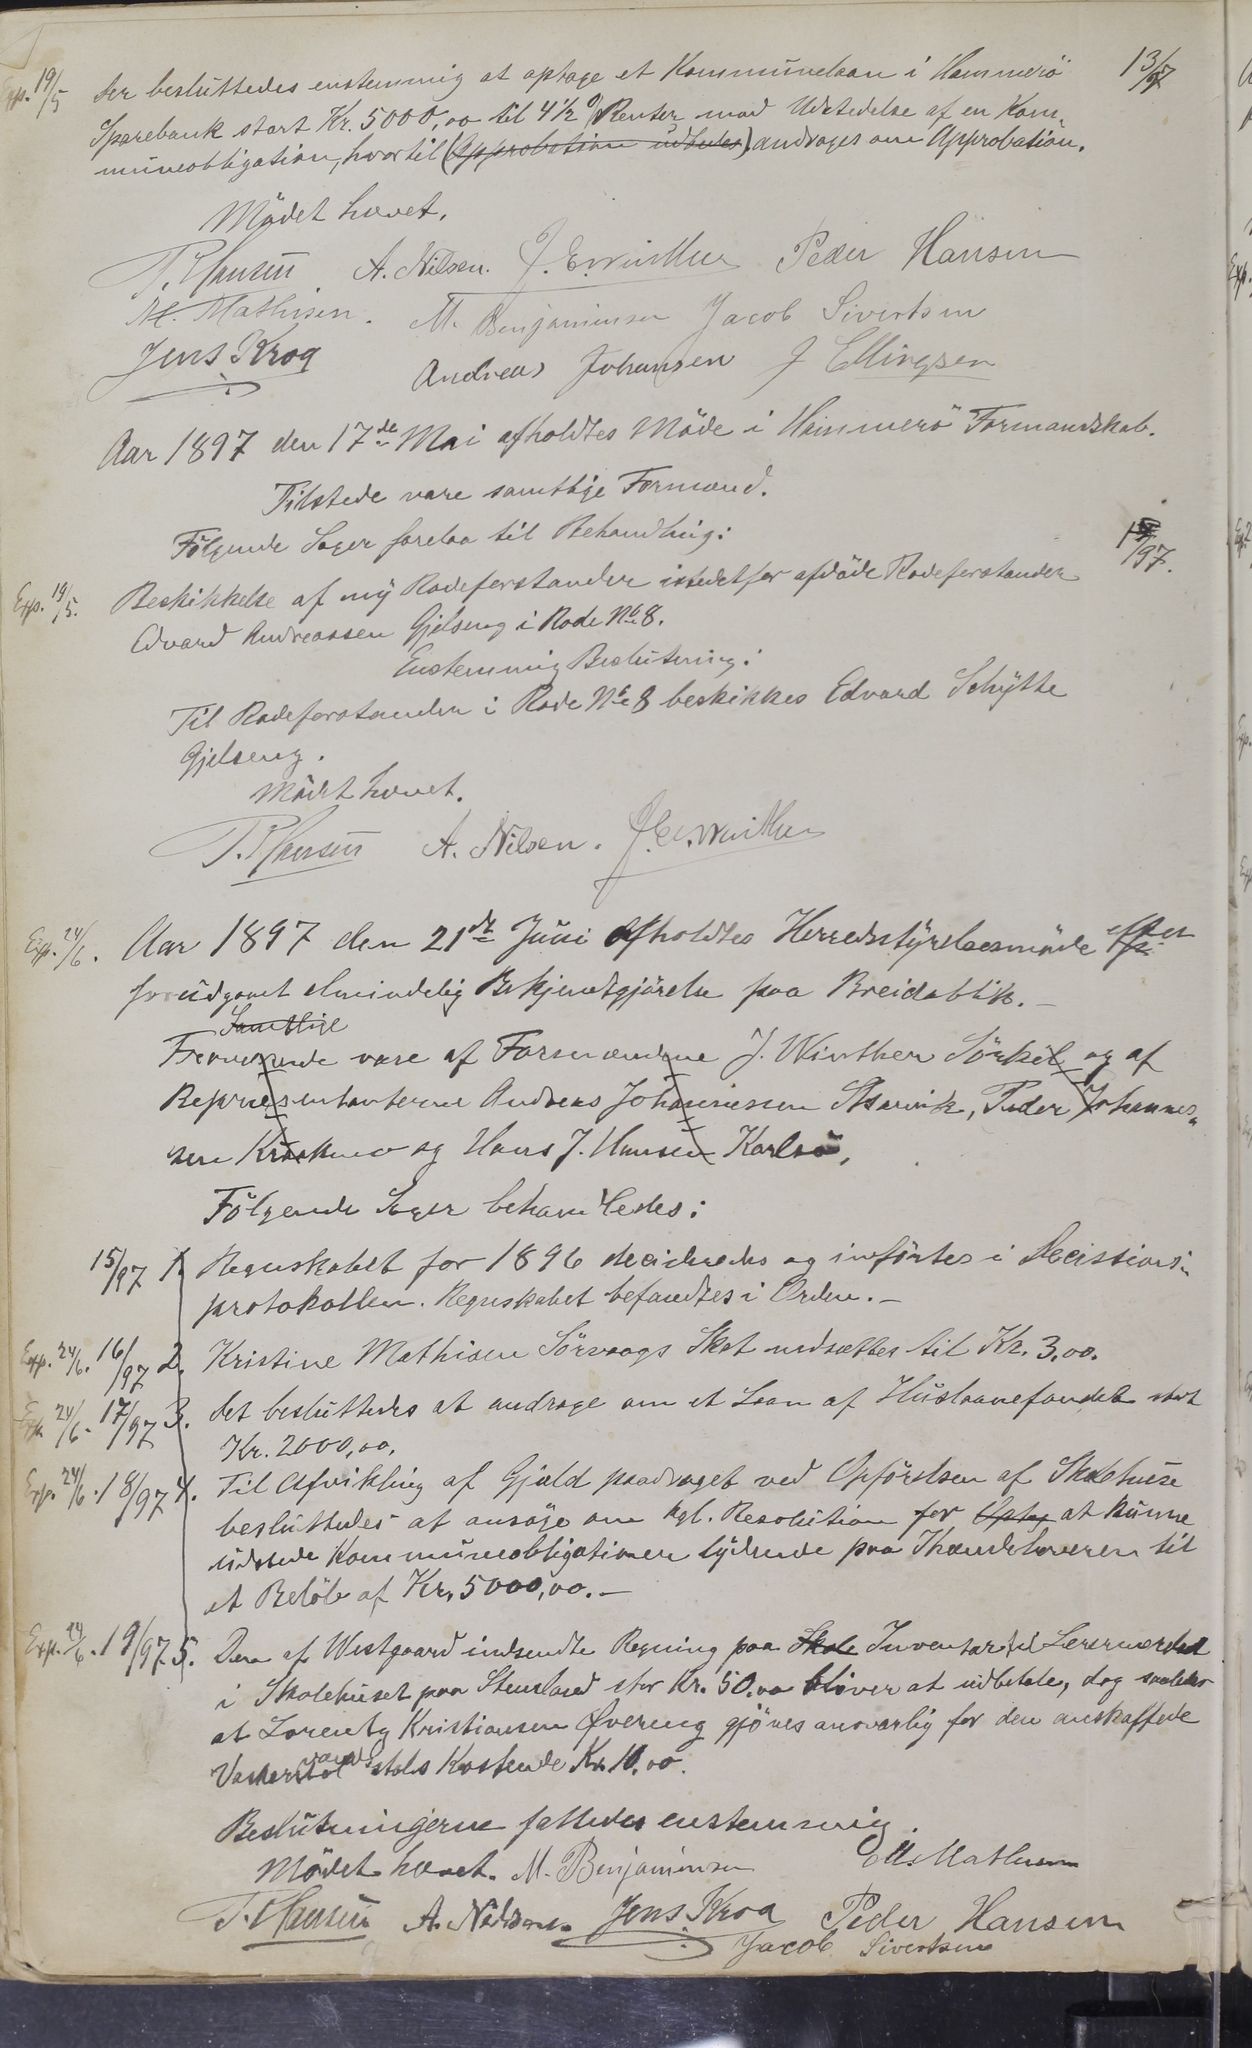 Exp. 19/5 Der besluttedes enstemmig at optage et Kommunelaan i Hammerö 13/97
Sparebank stort Kr. 5000,00 til 4½ % Renter mod Udstedelse af en Kom-
muneobligation, hvortil (Approbation udbedes) andrages om Approbation.
Mödet hævet.
A. Nilsen. J. E. Winther Peder Hansen
M. Mathisen. M. Benjaminsen Jacob Sivertsen
Jens Krog Andreas Johansen J Ellingsen
Aar 1897 den 17de Mai afholdtes Möde i Hammerö Formandskab.
Tilstede vare samtlige Formænd.
Fölgende Sager forelaa til Behandling: /97.
Exp. 19/5. Beskikkelse af ny Rodeforstander istedetfor afdöde Rodeforstander
Edvard Andreassen Gjelseng i Rode No 8.
Enstemmig Beslutning:
Til Rodeforstander i Rode No 8 beskikkes Edvard Schytte
Gjelseng.
Mödet hævet.
A. Nilsen. J. E. Winther
Exp. 24/6. Aar 1897 den 21de Juni afholdtes Herredsstyrelsesmöde efter
forudgaaet almindelig Bekjendtgjörelse paa Breidablik.-
Samtlige
Fraværende vare af Formændene J. Winther Sörkil og af
Repræsentanterne Andreas Johannessen Skarvik, Peder Johannes-
sen Kraakmo og Hans J. Hansen Karlsö,
Fölgende Sager behandledes:
15/97 1. Regnskabet for 1896 decideredes og indförtes i Decissions-
protokollen. Regnskabet befandtes i Orden.-
Exp. 24/6. 16/97 2. Kristine Mathisen Sörvaags Skat nedsættes til Kr. 3,00.
Exp. 24/6. 17/97 3. Det besluttedes at andrage om et Laan af Huslaanefondet stort
Kr. 2000,00.
Exp. 24/6. 18/97 4. Til Afvikling af Gjæld paadraget ved Opförelsen af Skolehuse
besluttedes at ansöge om kgl. Resolution for at kunne
udstede Kommuneobligationer lydende paa Ihændehaveren til
et Belöb af Kr. 5000,00.-
Exp. 24/6. 19/97 5. Den af Westgaard indsendte Regning paa Skole Inventar til Lærerværelset
i Skolehuset paa Stensland stor Kr. 50.00 bliver at udbetale, dog saaledes
at Lorentz Kristiansen Øvereng gjöres ansvarlig for den anskaffede
stols Kostende Kr. 10,00.
Beslutningerne fattedes enstemmig.
Mödet hævet. M. Benjaminsen M. Mathisen
A. Nilsen. Jens Krog Peder Hansen
Jacob Sivertsen